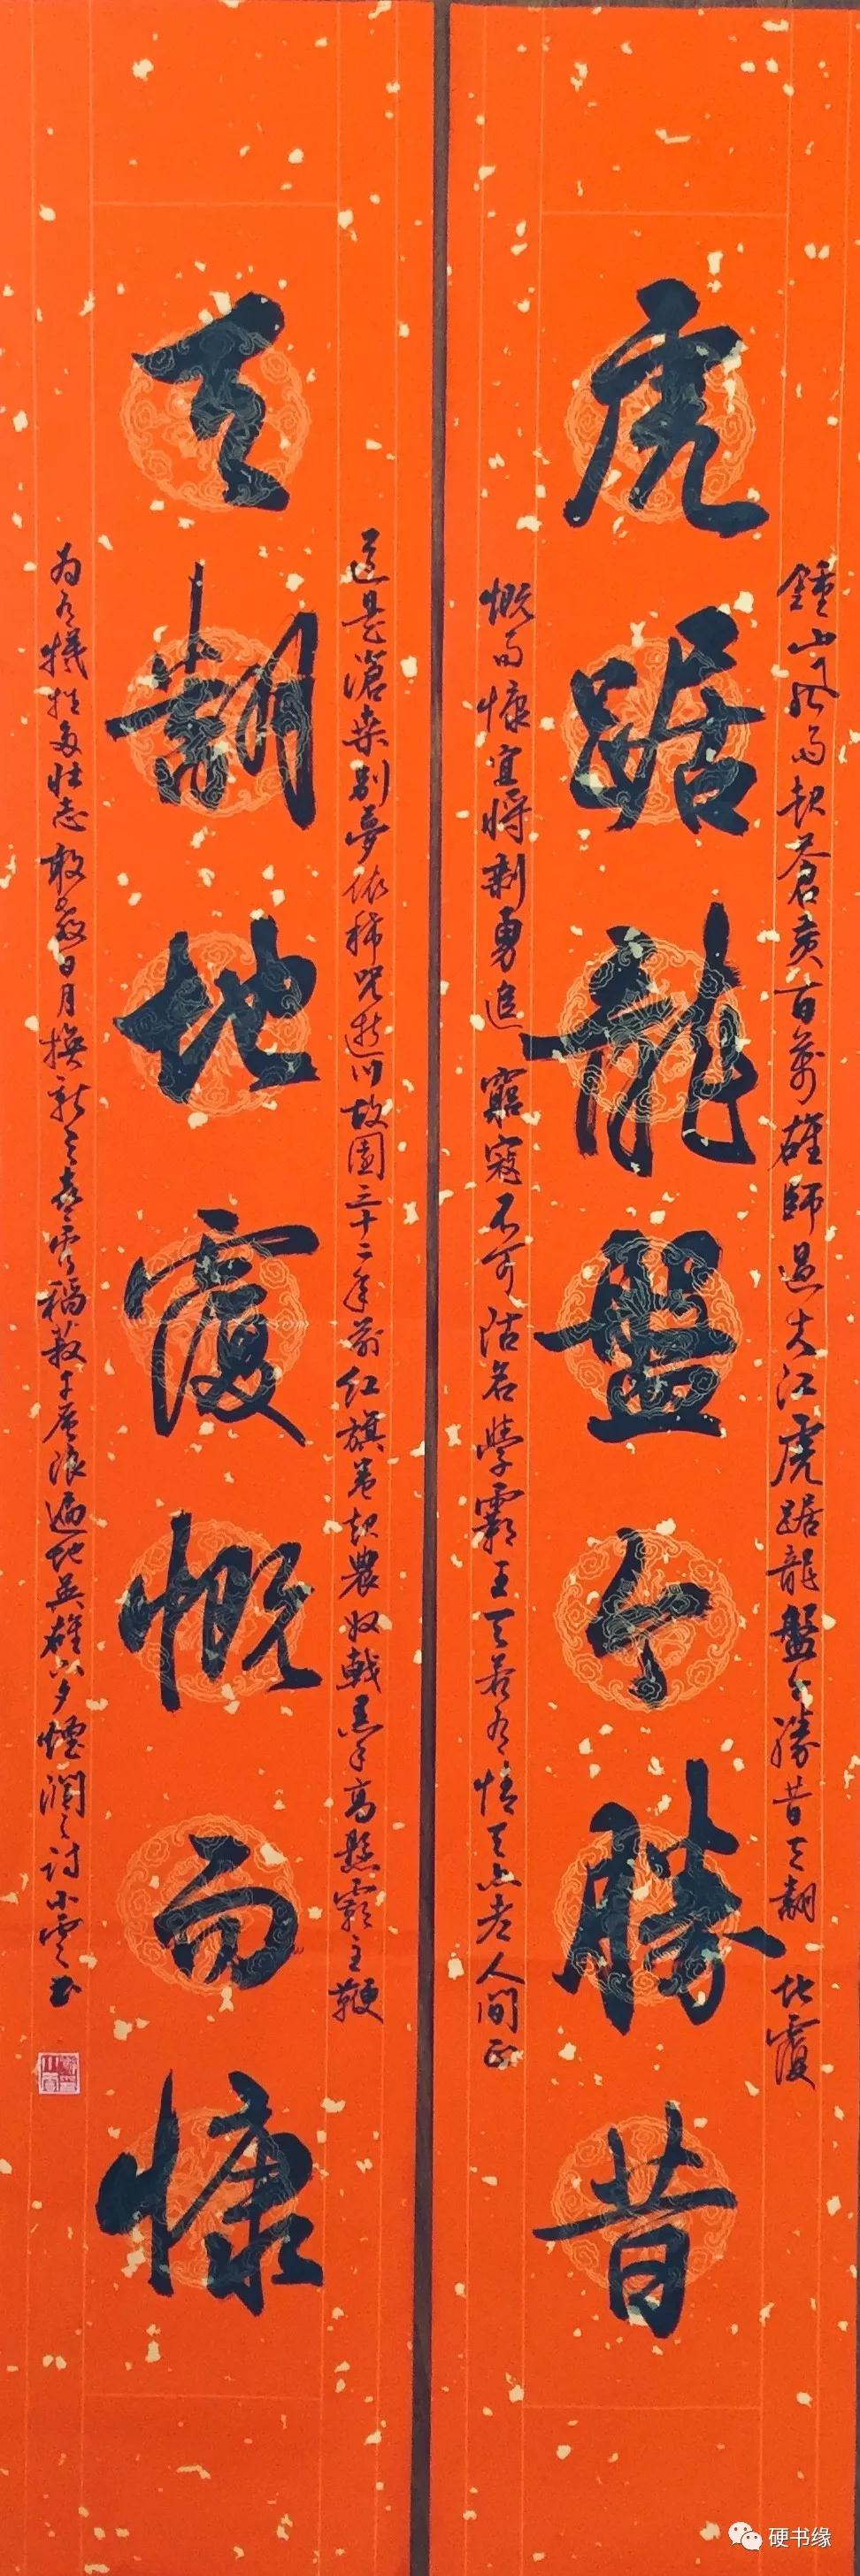 鍾山風雨起蒼黃百萬雄師過大江虎踞龍盤今勝昔天翻地覆
虎踞龍盤今勝昔
慨而慷宜將剩勇追窮寇不可沽名學霸王天若有情天亦老人間正
道是滄桑別夢依稀咒逝川故園三十二年前红旗卷起農奴戟黑手高懸霸主鞭
天翻地覆慨而慷
為有犧牲多壯志敢教日月換新天喜看稻菽千層浪遍地英雄下夕煙潤之詩小雲書
硬书缘